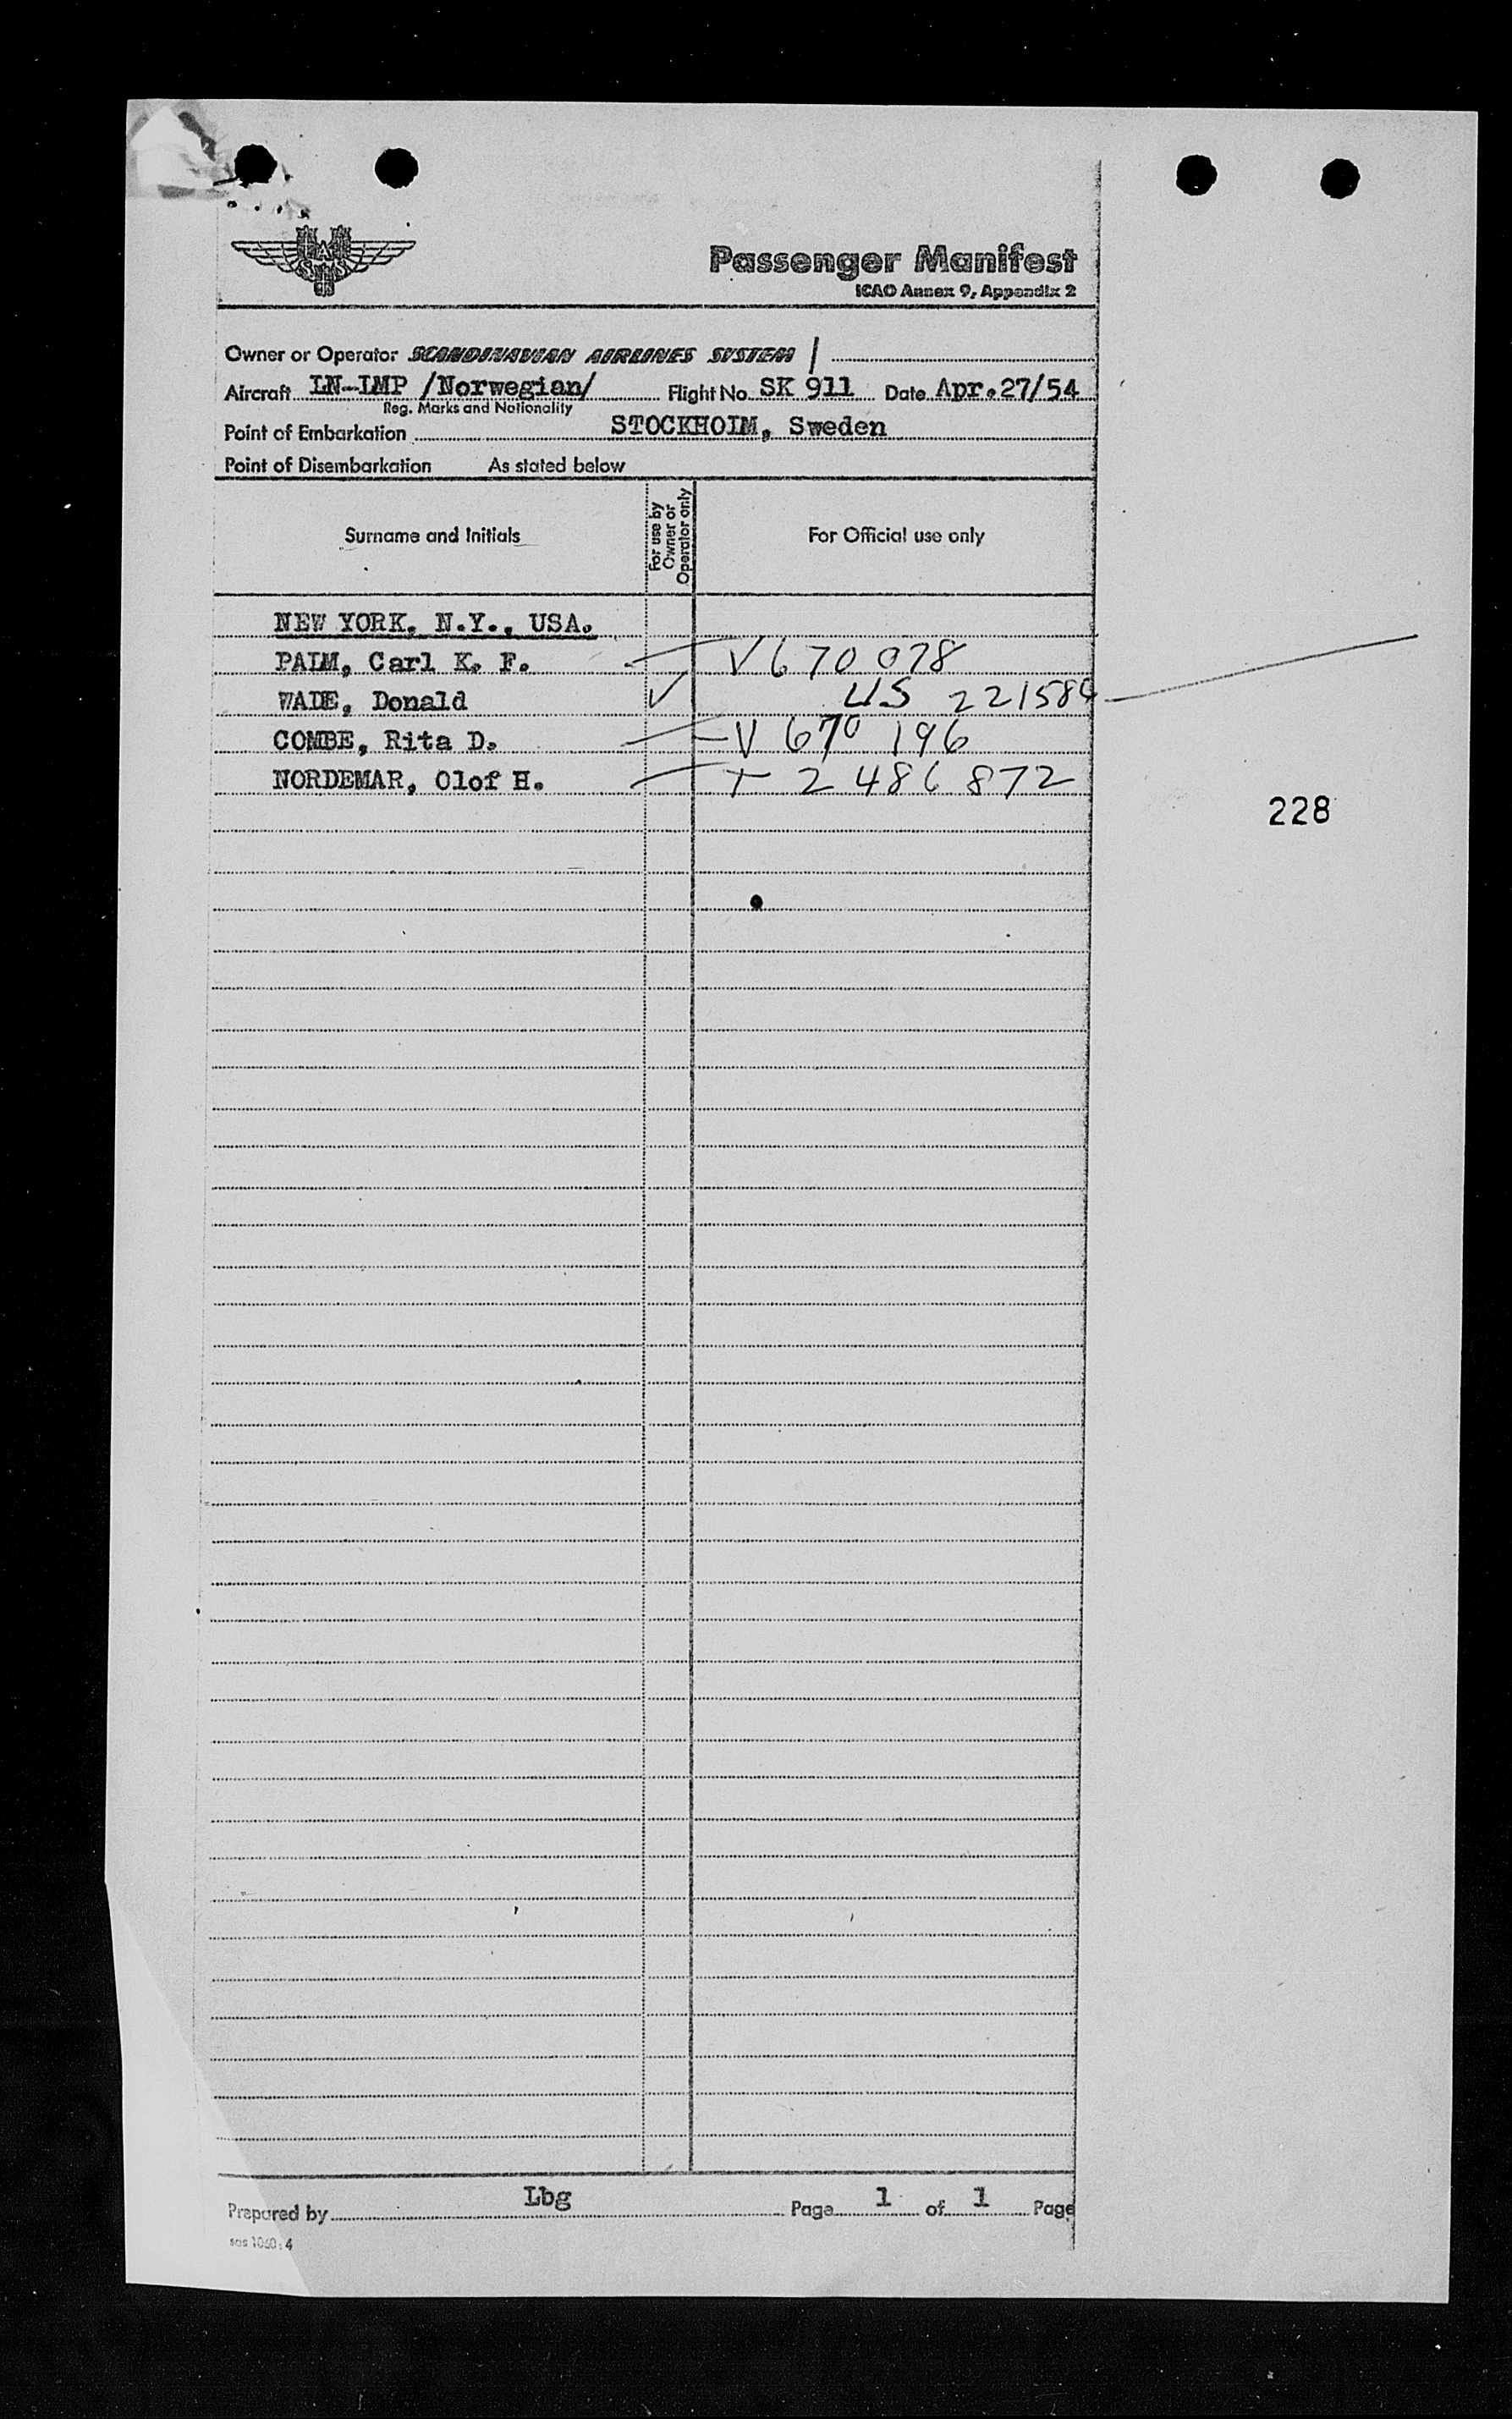 SAS
Passenger Manifest
ICAO Annex 9, Appendix 2
Owner or Operator SCANDINAVIAN AIRLINES SYSTEM /
Aircraft LN-LMP /Norwegian/ Flight No. SK 911 Date Apr.27/54
Reg. Marks and Nationality
Point of Embarkation STOCKHOLM, Sweden
Point of Disembarkation As stated below
Surname and Initials For use by Owner or Operator only For Official use only
NEW YORK, N.Y., USA.
PALM, Carl K. F. V670 078
WADE, Donald ✓ US 221584
COMBE, Rita D. V 670 196
NORDEMAR, Olof H. T 2 486 872
228
Prepared by Lbg Page 1 of 1 Page
sas 1060:4